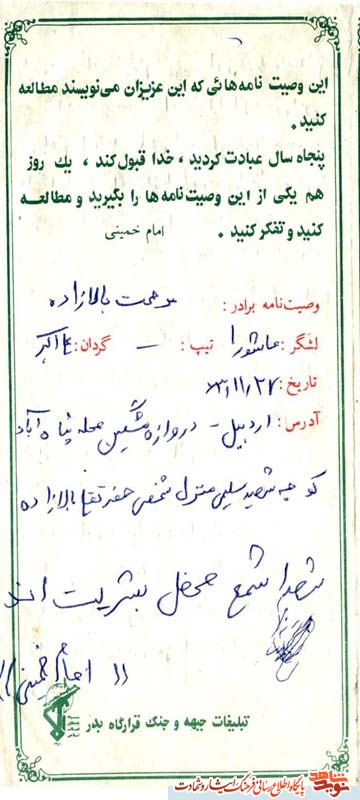 این وصیت نامه‌هائی که این عزیزان می‌نویسند مطالعه
کنید.
پنجاه سال عبادت کردید، خدا قبول کند، یك روز
هم یکی از این وصیت‌نامه‌ها را بگیرید و مطالعه
کنید و تفکر کنید.
امام خمینی
وصیت‌نامه برادر: بالازاده
لشگر: عاشورا تیپ: — گردان: اکبر
تاریخ: ۶۳/۱۱/۲۷
آدرس: اردبیل - دروازه مشگین محله پناه آباد
کوچه شهید سلیمی منزل شخصی حضرتقلی بالازاده
شهدا شمع محفل بشریت اند
(( امام خمینی ))
تبلیغات جبهه و جنگ قرارگاه بدر
نوید شاهد
پایگاه اطلاع رسانی فرهنگ ایثار و شهادت